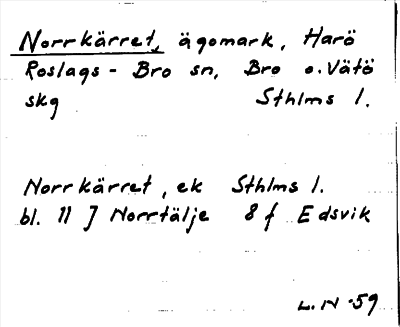 Norrkärret, ägomark, Harö
Roslags-Bro sn, Bro o. Vätö
skg Sthlms l.
Norrkärret, ek Sthlms l.
bl. 11 J Norrtälje 8 f Edsvik
L.N -59